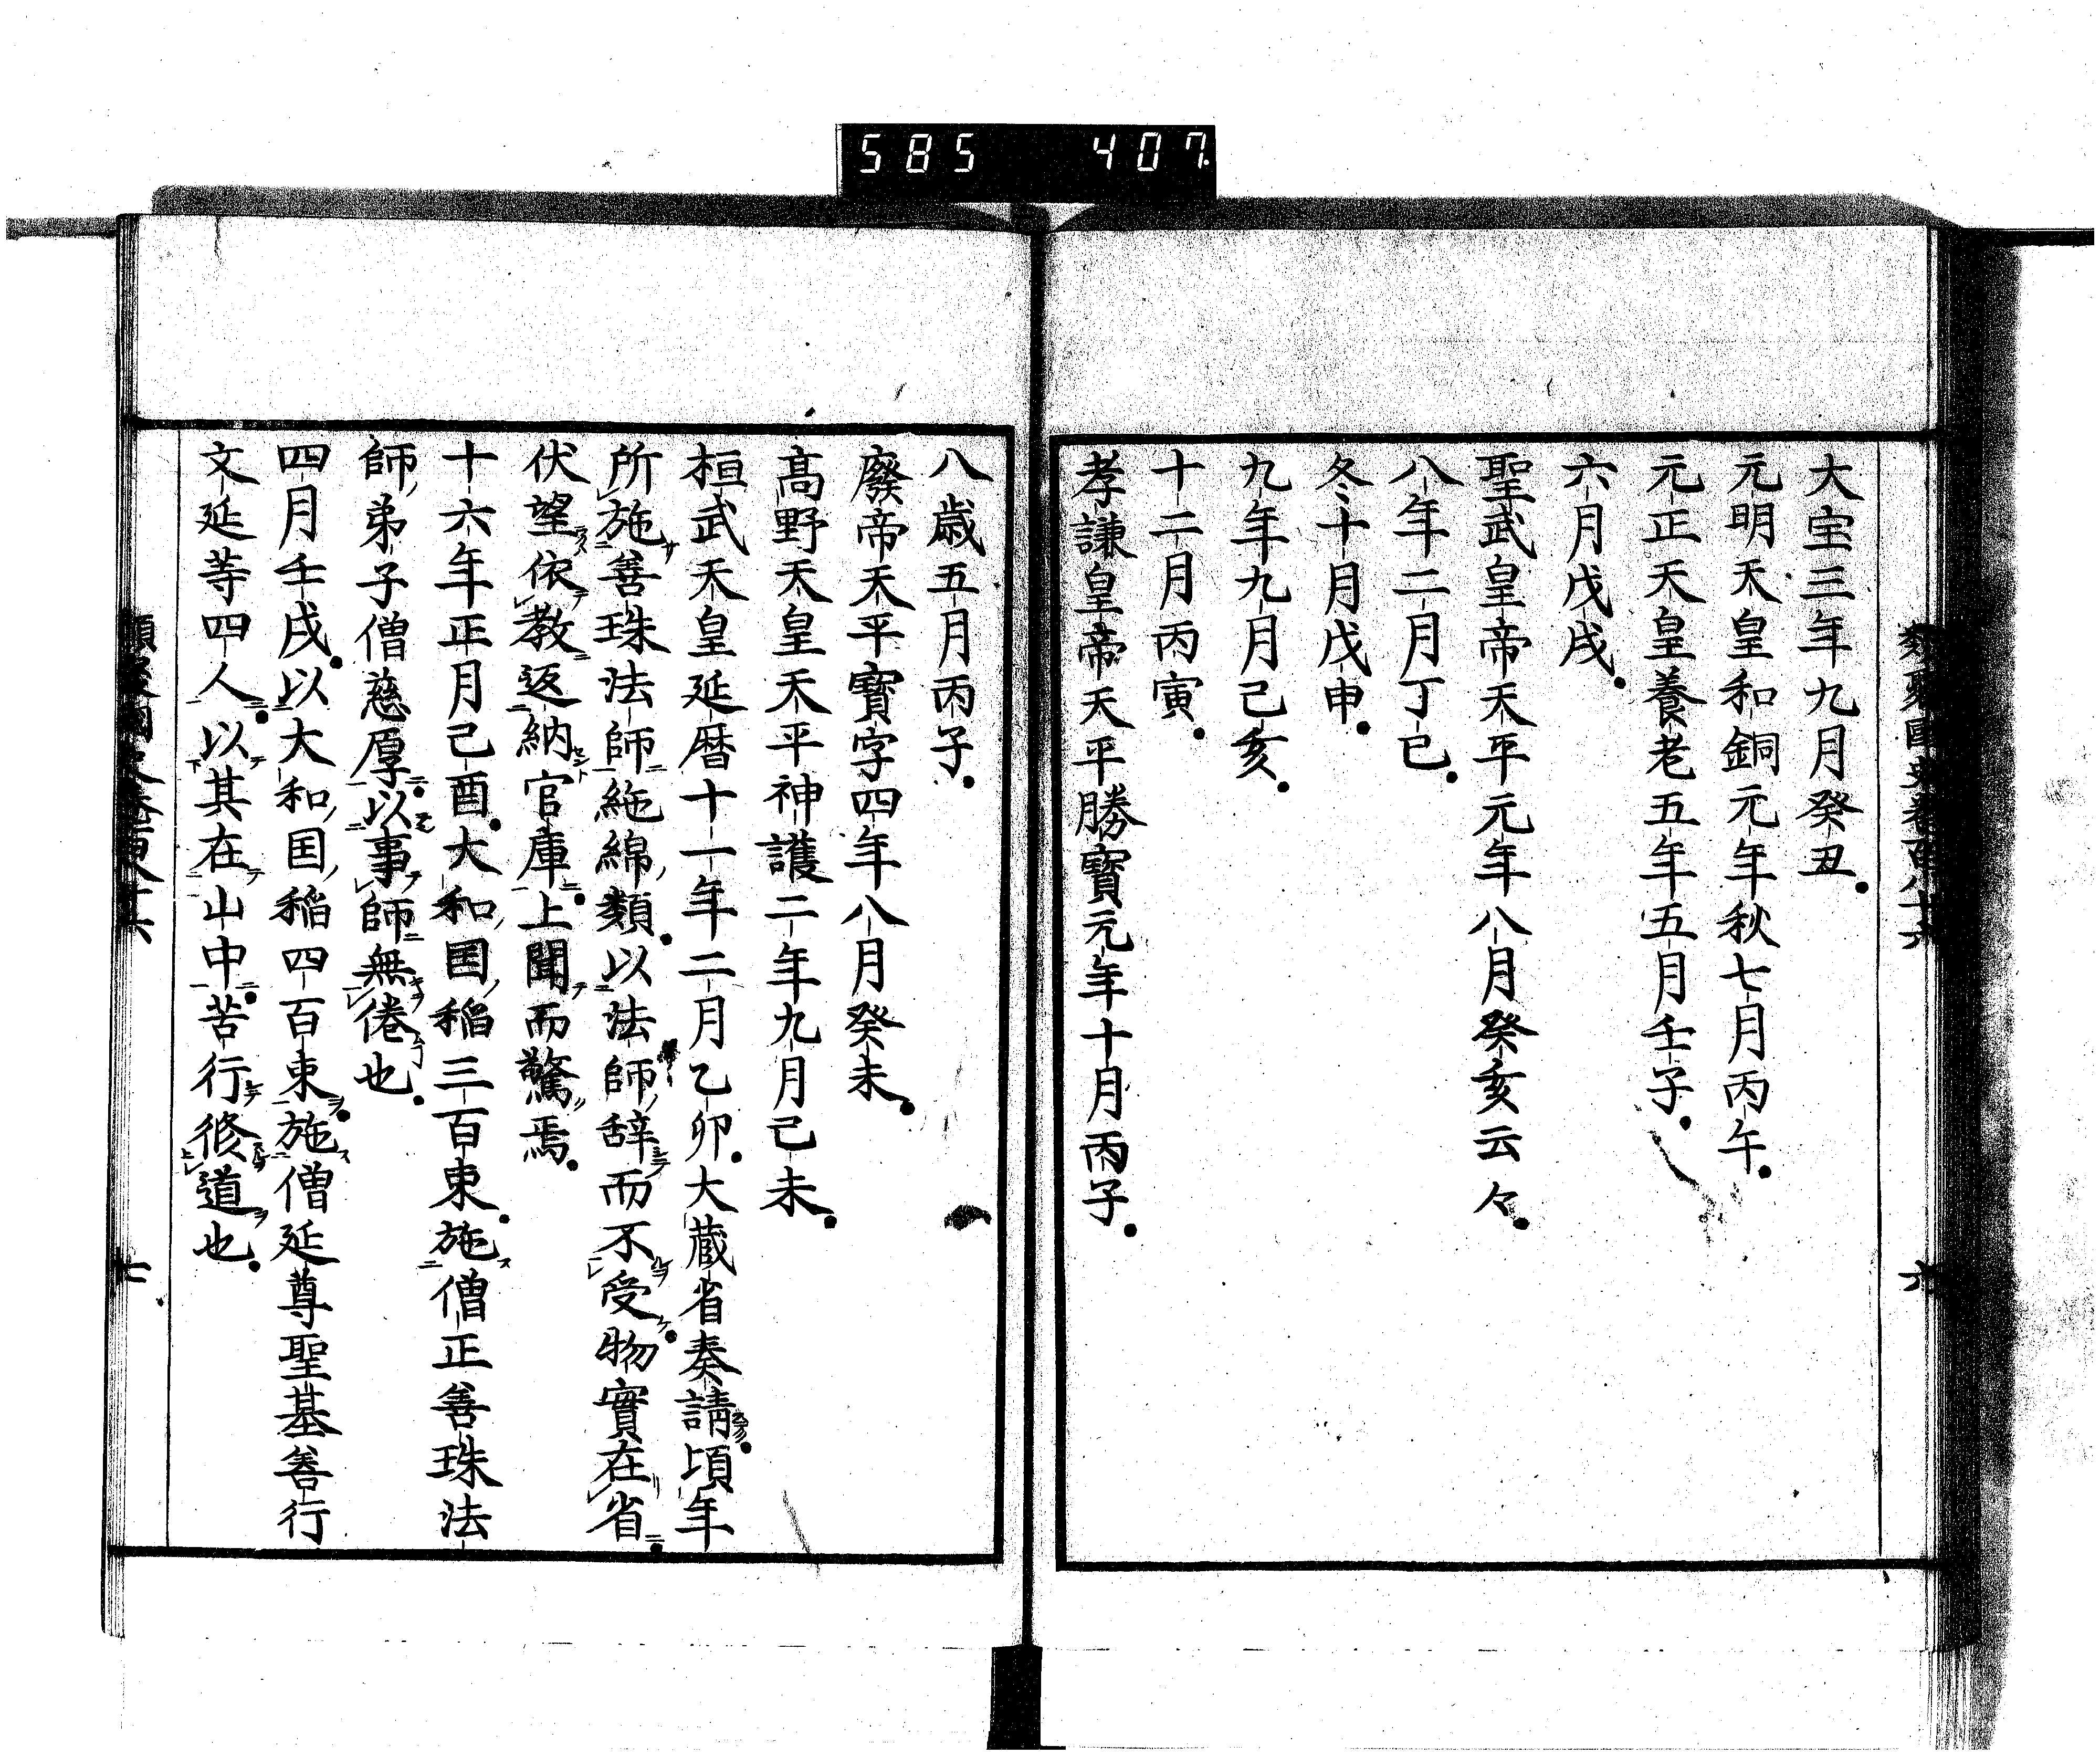 585 407
類聚國史卷百八十六 六
大宝三年九月癸丑
元明天皇和銅元年秋七月丙午
元正天皇養老五年五月壬子
六月戊戌
聖武皇帝天平元年八月癸亥云々
八年二月丁巳
冬十月戊申
九年九月己亥
十二月丙寅
孝謙皇帝天平勝寳元年十月丙子
八歳五月丙子
廢帝天平寳字四年八月癸未
高野天皇天平神護二年九月己未
桓武天皇延暦十一年二月乙卯大蔵省奏請頃年
所施善珠法師絁綿類以法師辞而不受物實在省
伏望依教返納官庫上聞而驚焉
十六年正月己酉大和国稲三百束施僧正善珠法
師弟子僧慈厚以事師無倦也
四月壬戌以大和国稲四百束施僧延尊聖基善行
文延等四人以其在山中苦行修道也
七